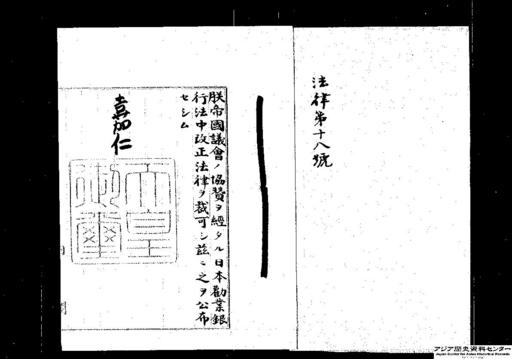 法律第十八號
朕帝國議會ノ協賛ヲ經タル日本勸業銀
行法中改正法律ヲ裁可シ茲ニ之ヲ公布
セシム
嘉仁
天皇御璽
アジア歴史資料センター
Japan Center for Asian Historical Records